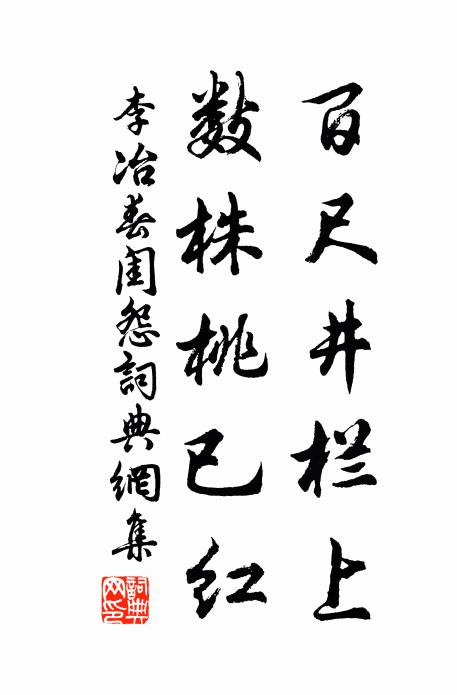 百尺井栏上
数株桃已红
李冶春闺怨詞典網集
詞典网印